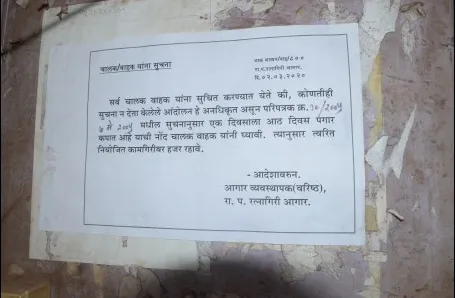 चालक/वाहक यांना सुचना
रा.प.रत्नागिरी आगार.
दि.०२.०३.२०२०
सर्व चालक वाहक यांना सुचित करण्यात येते की, कोणतीही
सुचना न देता केलेले आंदोलन हे अनधिकृत असून परिपत्रक क्र.१०/२००५
मधील सुचनानुसार एक दिवसाला आठ दिवस पगार
कपात आहे याची नोंद चालक वाहक यांनी घ्यावी. त्यानुसार त्वरित
नियोजित कामगिरीवर हजर रहावे.
- आदेशावरुन.
आगार व्यवस्थापक(वरिष्ठ),
रा. प. रत्नागिरी आगार.